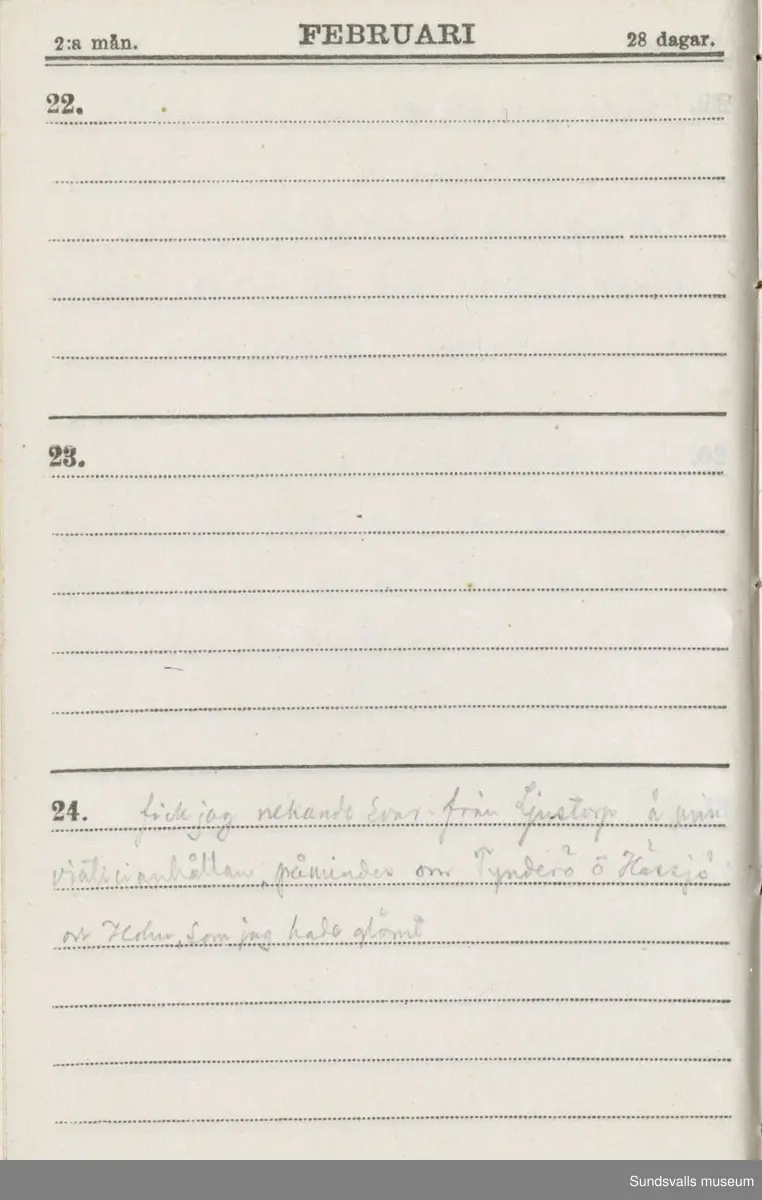 2:a mån. FEBRUARI 28 dagar.
22.
23.
24. fick jag nekande svar från Ljustorp å min
anhållan, påmindes om Tynderö ö Hässjö
Holm, som jag hade glömt
Sundsvalls museum